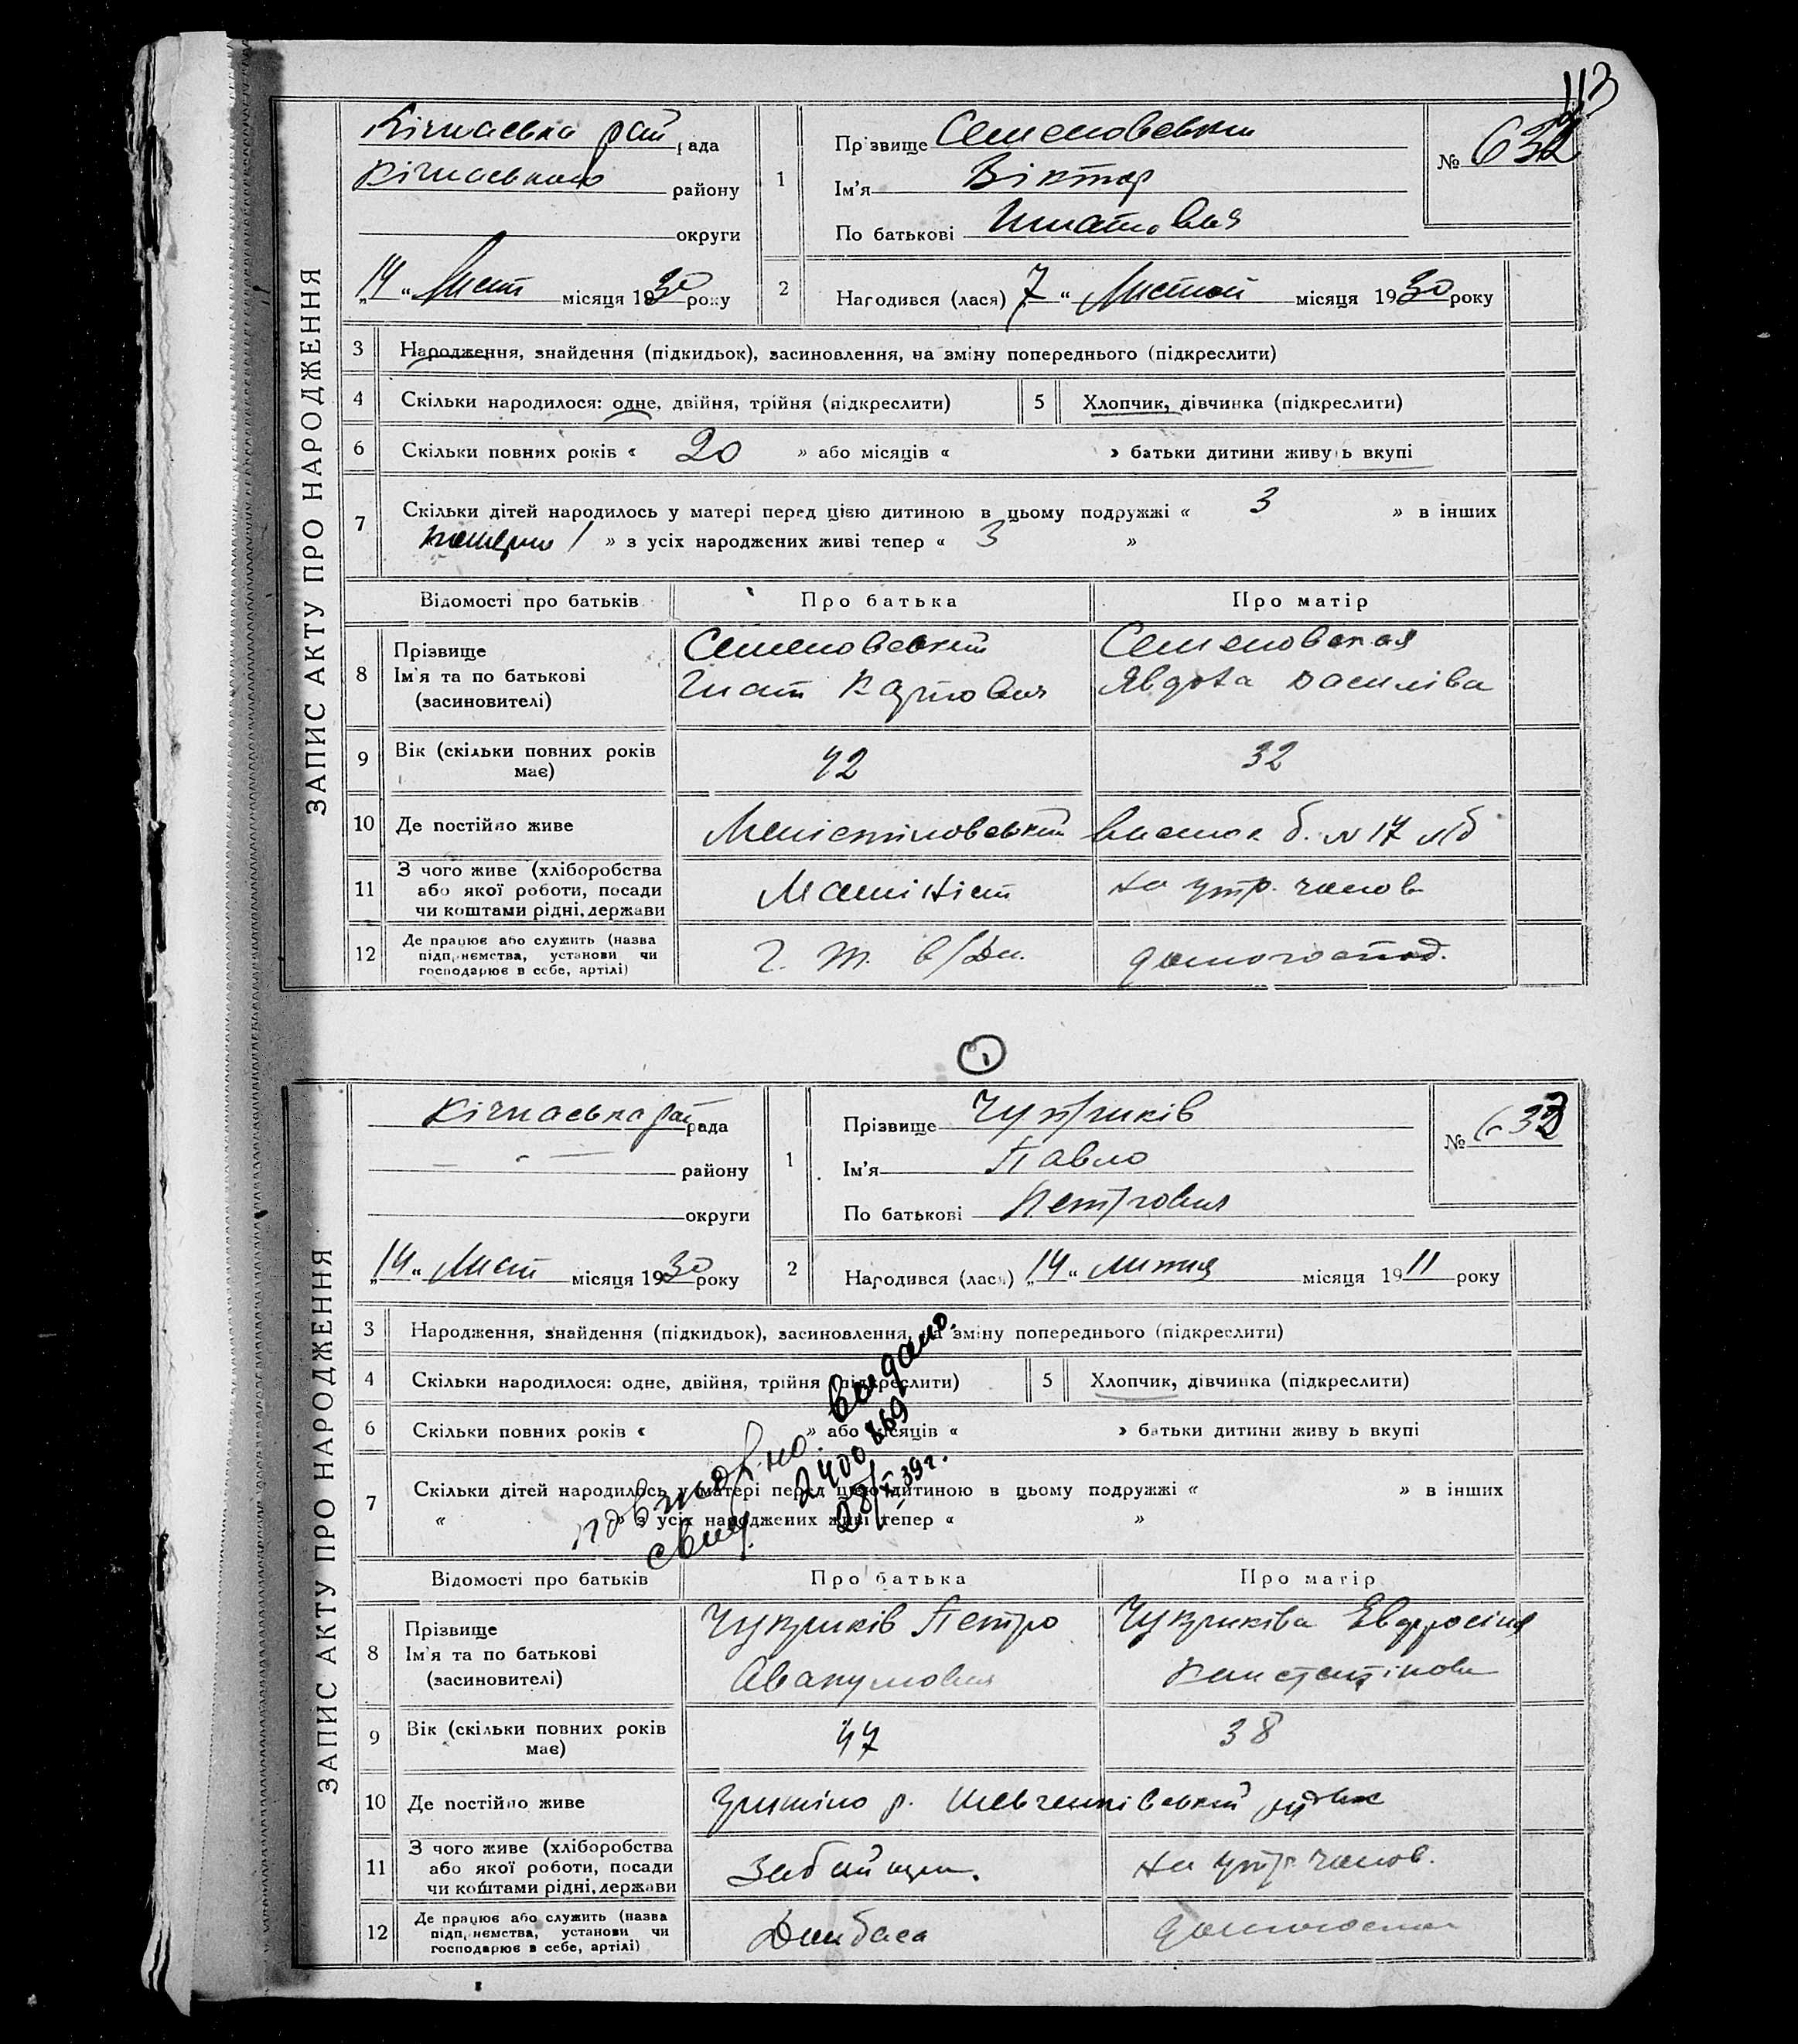 113
ЗАПИС АКТУ ПРО НАРОДЖЕННЯ
Кічкаська рай рада
Кічкаського району
округи
„14“ Лист місяця 1930 року
1
Прізвище Семеновський
Ім'я Віктор
По батькові Гнатович
№ 632
2
Народився (лася) 7 “ Листоп місяця 1930 року
3 Народження, знайдення (підкидьок), засиновлення, на зміну попереднього (підкреслити)
4 Скільки народилося: одне, двійня, трійня (підкреслити) 5 Хлопчик, дівчинка (підкреслити)
6 Скільки повних років « 20 » або місяців « » батьки дитини живуть вкупі
7 Скільки дітей народилось у матері перед цією дитиною в цьому подружжі « 3 » в інших
померло 1 » з усіх народжених живі тепер « 3 »
Відомості про батьків Про батька Про матір
8 Прізвище Ім'я та по батькові (засновителі)
Семеновський Семеновская
Гнат Карпович Явдоха Василівa
9 Вік (скільки повних років має) 42 32
10 Де постійно живе б. №17
11 З чого живе (хліборобства або якої роботи, посади чи коштами рідні, держави Машініст на утр. чолов
12 Де працює або служить (назва підприємства, установи чи господарює в себе, артілі) домогоспод.
1
ЗАПИС АКТУ ПРО НАРОДЖЕННЯ
Кічкаська рай рада
району
округи
„14“ Лист місяця 1930 року
1
Прізвище
Ім'я Павло
По батькові Петрович
№ 633
2
Народився (лася) „14“ липня місяця 1911 року
3 Народження, знайдення (підкидьок), засиновлення, на зміну попереднього (підкреслити)
4 Скільки народилося: одне, двійня, трійня (підкреслити) 5 Хлопчик, дівчинка (підкреслити)
6 Скільки повних років « » або місяців « » батьки дитини живуть вкупі
7 Скільки дітей народилось у матері перед цією дитиною в цьому подружжі « » в інших
« » з усіх народжених живі тепер « »
выдано.
свид. 2400869
39 г.
Відомості про батьків Про батька Про матір
8 Прізвище Ім'я та по батькові (засиновителі)
Петро
Авакумович
9 Вік (скільки повних років має) 47 38
10 Де постійно живе р. Шевченківський
11 З чого живе (хліборобства або якої роботи, посади чи коштами рідні, держави Забойщик. на утр. чолов.
12 Де працює або служить (назва підприємства, установи чи господарює в себе, артілі) Донбаса домогоспод